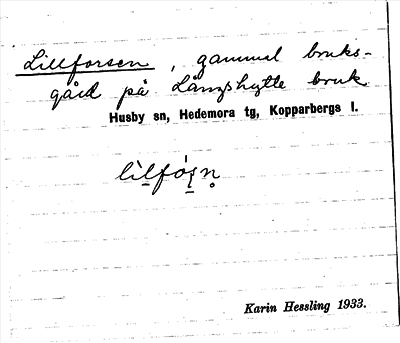 Lillforsen, gammal bruks-
gård på Långshytte bruk
Husby sn, Hedemora tg, Kopparbergs l.
Karin Hessling 1933.